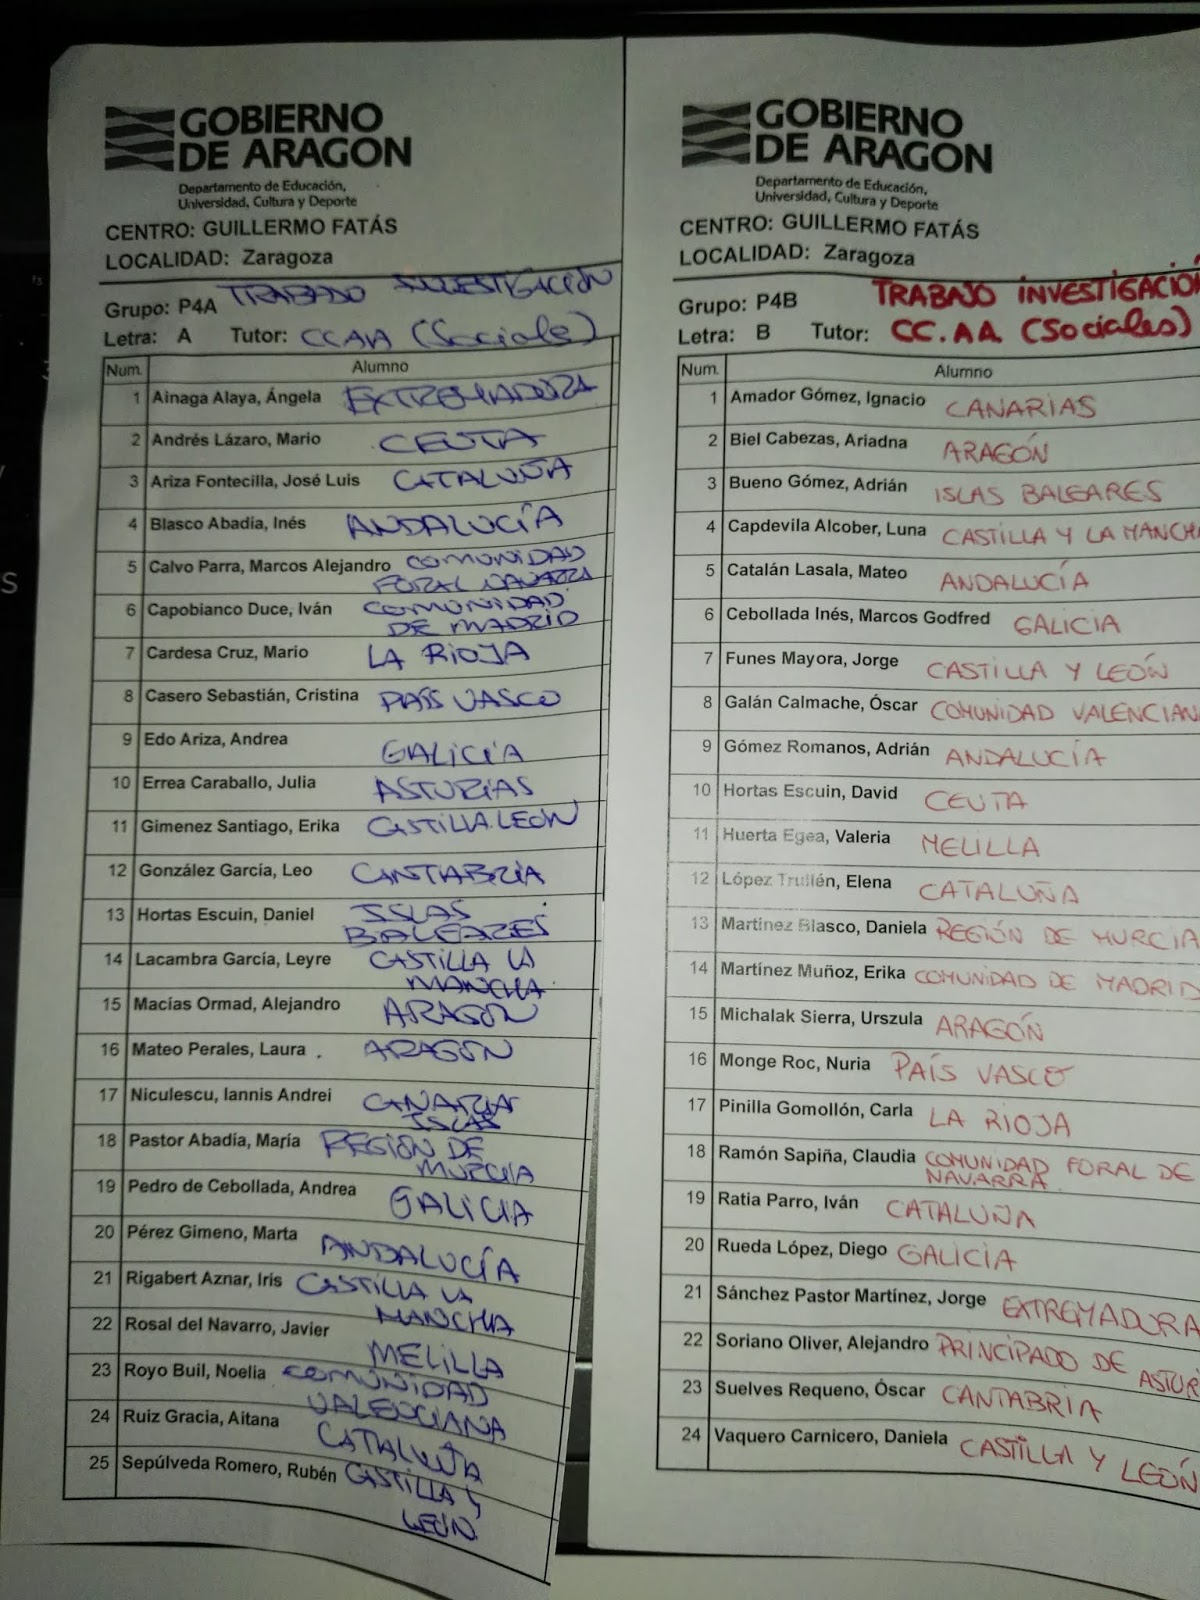 GOBIERNO
DE ARAGON
Departamento de Educación,
Universidad, Cultura y Deporte
CENTRO: GUILLERMO FATÁS
LOCALIDAD: Zaragoza
Grupo: P4A TRABAJO INVESTIGACIÓN
Letra: A Tutor: CCAA (Sociales)
Num. Alumno
1 Ainaga Alaya, Ángela EXTREMADURA
2 Andrés Lázaro, Mario CEUTA
3 Ariza Fontecilla, José Luis CATALUÑA
4 Blasco Abadía, Inés ANDALUCÍA
5 Calvo Parra, Marcos Alejandro COMUNIDAD
FORAL NAVARRA
6 Capobianco Duce, Iván COMUNIDAD
DE MADRID
7 Cardesa Cruz, Mario LA RIOJA
8 Casero Sebastián, Cristina PAÍS VASCO
9 Edo Ariza, Andrea GALICIA
10 Errea Caraballo, Julia ASTURIAS
11 Gimenez Santiago, Erika CASTILLA LEÓN
12 González García, Leo CANTABRIA
13 Hortas Escuin, Daniel ISLAS
BALEARES
14 Lacambra García, Leyre CASTILLA LA
MANCHA
15 Macías Ormad, Alejandro ARAGÓN
16 Mateo Perales, Laura . ARAGÓN
17 Niculescu, Iannis Andrei CANARIAS
ISLAS
18 Pastor Abadía, María REGIÓN DE
MURCIA
19 Pedro de Cebollada, Andrea GALICIA
20 Pérez Gimeno, Marta ANDALUCÍA
21 Rigabert Aznar, Iris CASTILLA LA
MANCHA
22 Rosal del Navarro, Javier MELILLA
23 Royo Buil, Noelia COMUNIDAD
VALENCIANA
24 Ruiz Gracia, Aitana CATALUÑA
25 Sepúlveda Romero, Rubén CASTILLA Y
LEÓN
GOBIERNO
DE ARAGON
Departamento de Educación,
Universidad, Cultura y Deporte
CENTRO: GUILLERMO FATÁS
LOCALIDAD: Zaragoza
Grupo: P4B TRABAJO INVESTIGACIÓN
Letra: B Tutor: CC.AA (Sociales)
Num. Alumno
1 Amador Gómez, Ignacio CANARIAS
2 Biel Cabezas, Ariadna ARAGÓN
3 Bueno Gómez, Adrián ISLAS BALEARES
4 Capdevila Alcober, Luna CASTILLA Y LA MANCHA
5 Catalán Lasala, Mateo ANDALUCÍA
6 Cebollada Inés, Marcos Godfred GALICIA
7 Funes Mayora, Jorge CASTILLA Y LEÓN
8 Galán Calmache, Óscar COMUNIDAD VALENCIAN
9 Gómez Romanos, Adrián ANDALUCÍA
10 Hortas Escuin, David CEUTA
11 Huerta Egea, Valeria MELILLA
12 López Trullén, Elena CATALUÑA
13 Martínez Blasco, Daniela REGIÓN DE MURCIA
14 Martínez Muñoz, Erika COMUNIDAD DE MADRID
15 Michalak Sierra, Urszula ARAGÓN
16 Monge Roc, Nuria PAÍS VASCO
17 Pinilla Gomollón, Carla LA RIOJA
18 Ramón Sapiña, Claudia COMUNIDAD FORAL DE
NAVARRA
19 Ratia Parro, Iván CATALUÑA
20 Rueda López, Diego GALICIA
21 Sánchez Pastor Martínez, Jorge EXTREMADURA
22 Soriano Oliver, Alejandro PRINCIPADO DE
ASTUR
23 Suelves Requeno, Óscar CANTABRIA
24 Vaquero Carnicero, Daniela CASTILLA Y LEÓN